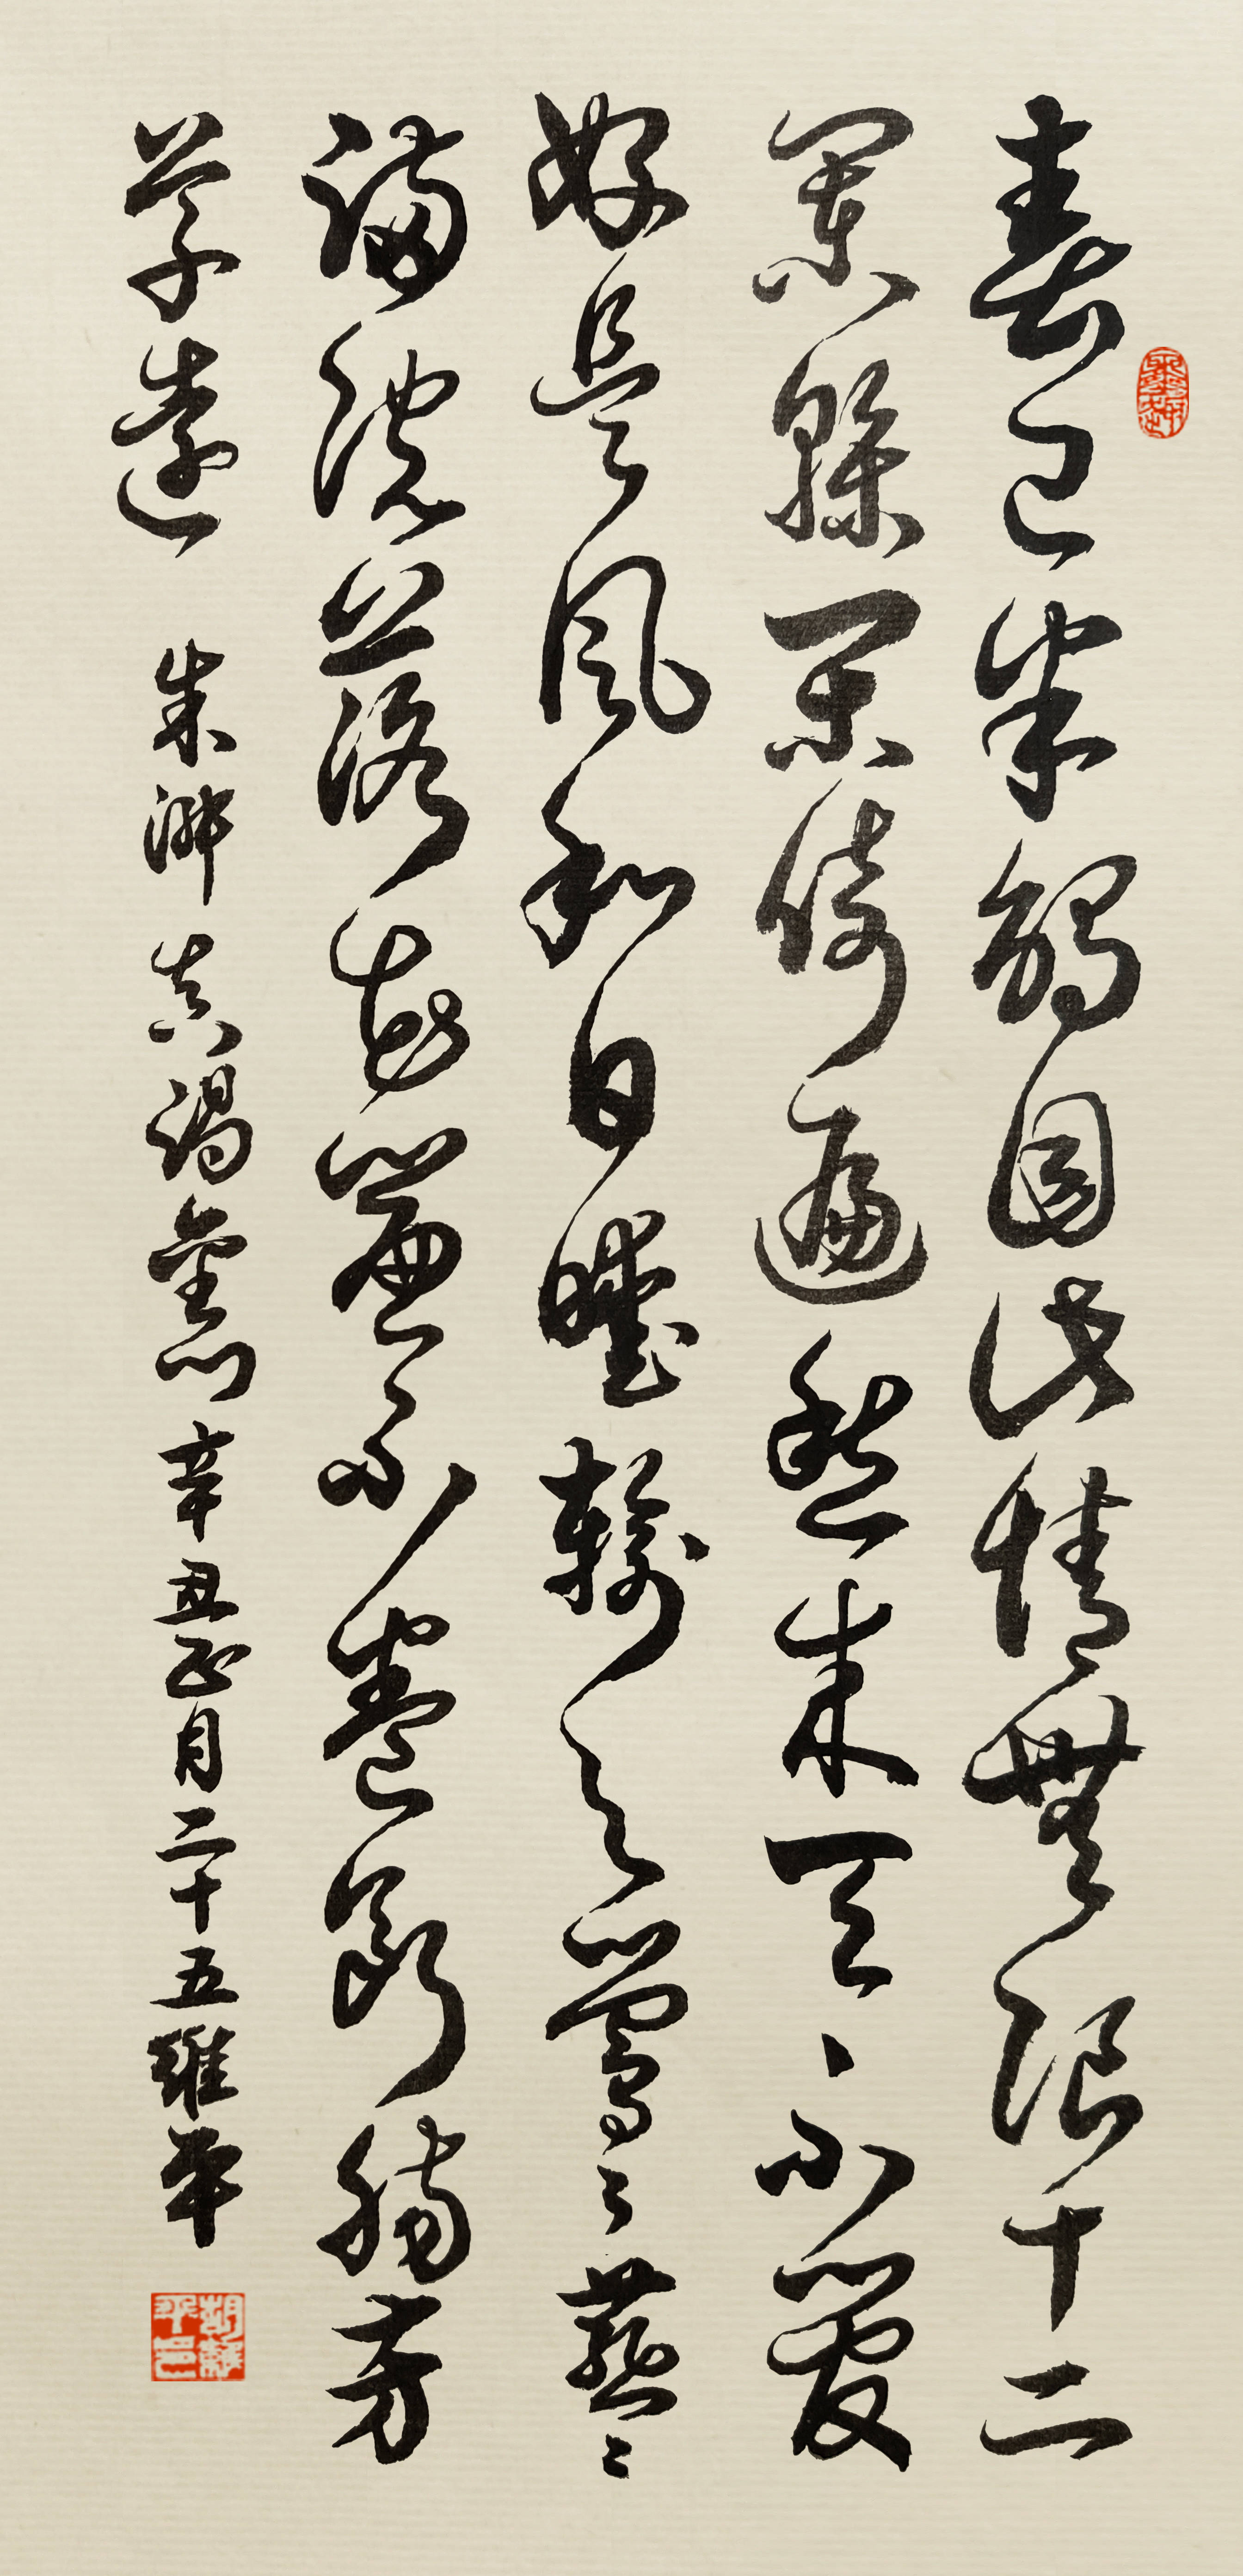 春已半觸目此情無限十二
闌榦閑倚遍愁來天不管
好是風和日暖輸与鶯〻燕〻
滿院落花簾不捲斷腸芳
草遠 朱淑真謁金門 辛丑正月二十五維平
胡維平印